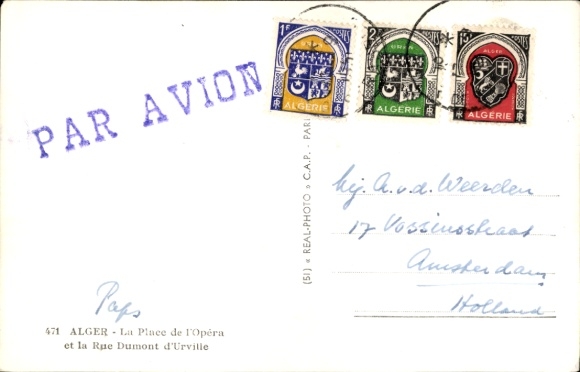 1F POSTES
ALGERIE
2F POSTES
ORAN
ALGERIE
15F POSTES
ALGER
ALGERIE
PAR AVION
(51) « REAL-PHOTO » C.A.P. - PARIS
A.v.d. Weerden
17 Vossiusstraat
Amsterdam
Holland
Paps
471 ALGER - La Place de l'Opéra
et la Rue Dumont d'Urville